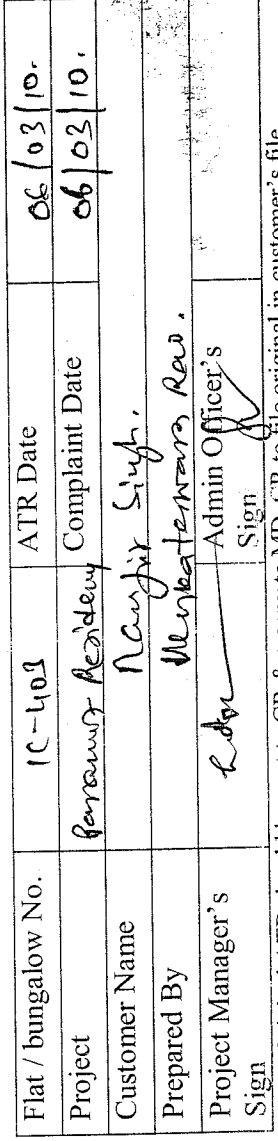 Flat / bungalow No. 1C-403 ATR Date 06/03/10.
Project Residency Complaint Date 06/03/10.
Customer Name Singh.
Prepared By Venkateswara Rao.
Project Manager's Sign Admin Officer's Sign
CR to file original in customer's file